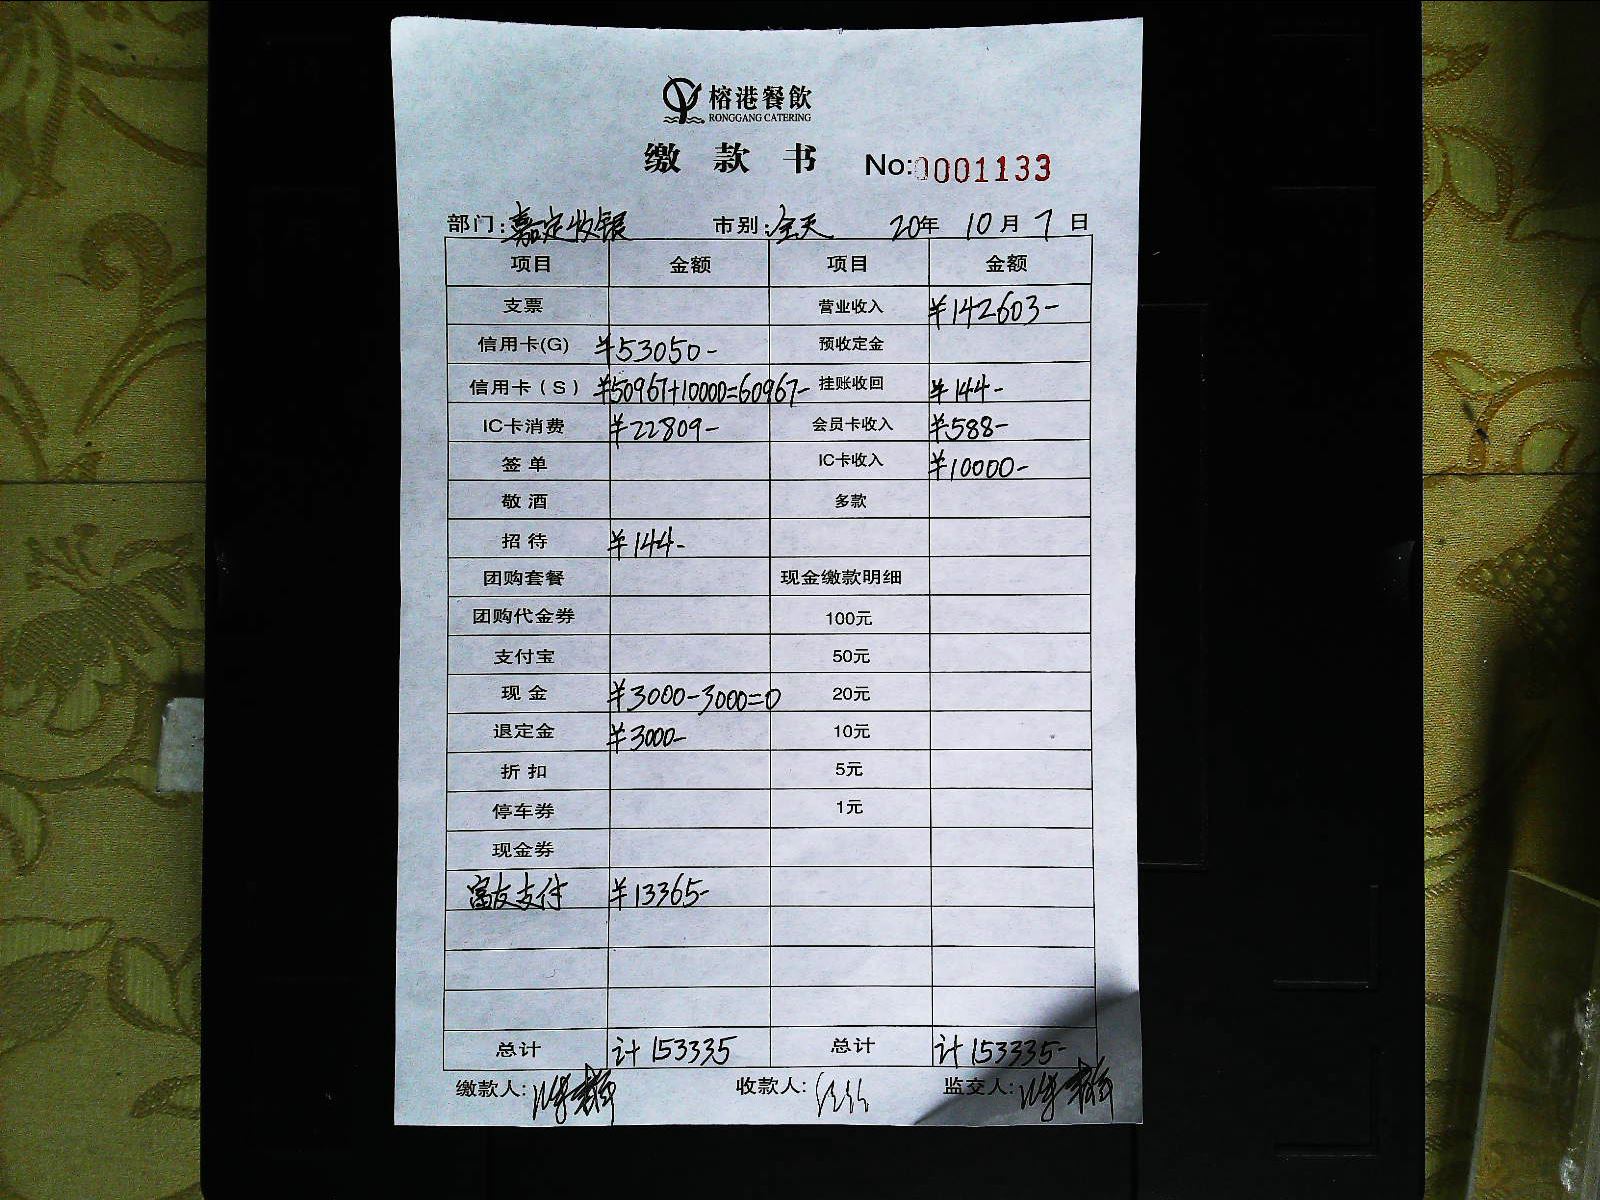 榕港餐飲
RONGGANG CATERING
缴款书 No:0001133
部门:嘉定收银 市别:全天 20年 10月 7日
项目 金额 项目 金额
支票 营业收入 ¥142603-
信用卡(G) ¥53050- 预收定金
信用卡(S) ¥50967+10000=60967- 挂账收回 ¥144-
IC卡消费 ¥22809- 会员卡收入 ¥588-
签单 IC卡收入 ¥10000-
敬酒 多款
招待 ¥144-
团购套餐 现金缴款明细
团购代金券 100元
支付宝 50元
现金 ¥3000-3000=0 20元
退定金 ¥3000- 10元
折扣 5元
停车券 1元
现金券
富友支付 ¥13365-
总计 计153335 总计 计153335-
缴款人: 收款人: 监交人: